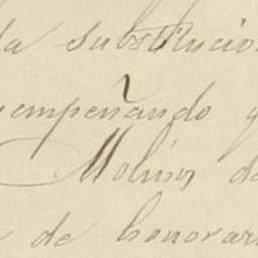 la substitucion
empeñando y
Molins de
de honorari